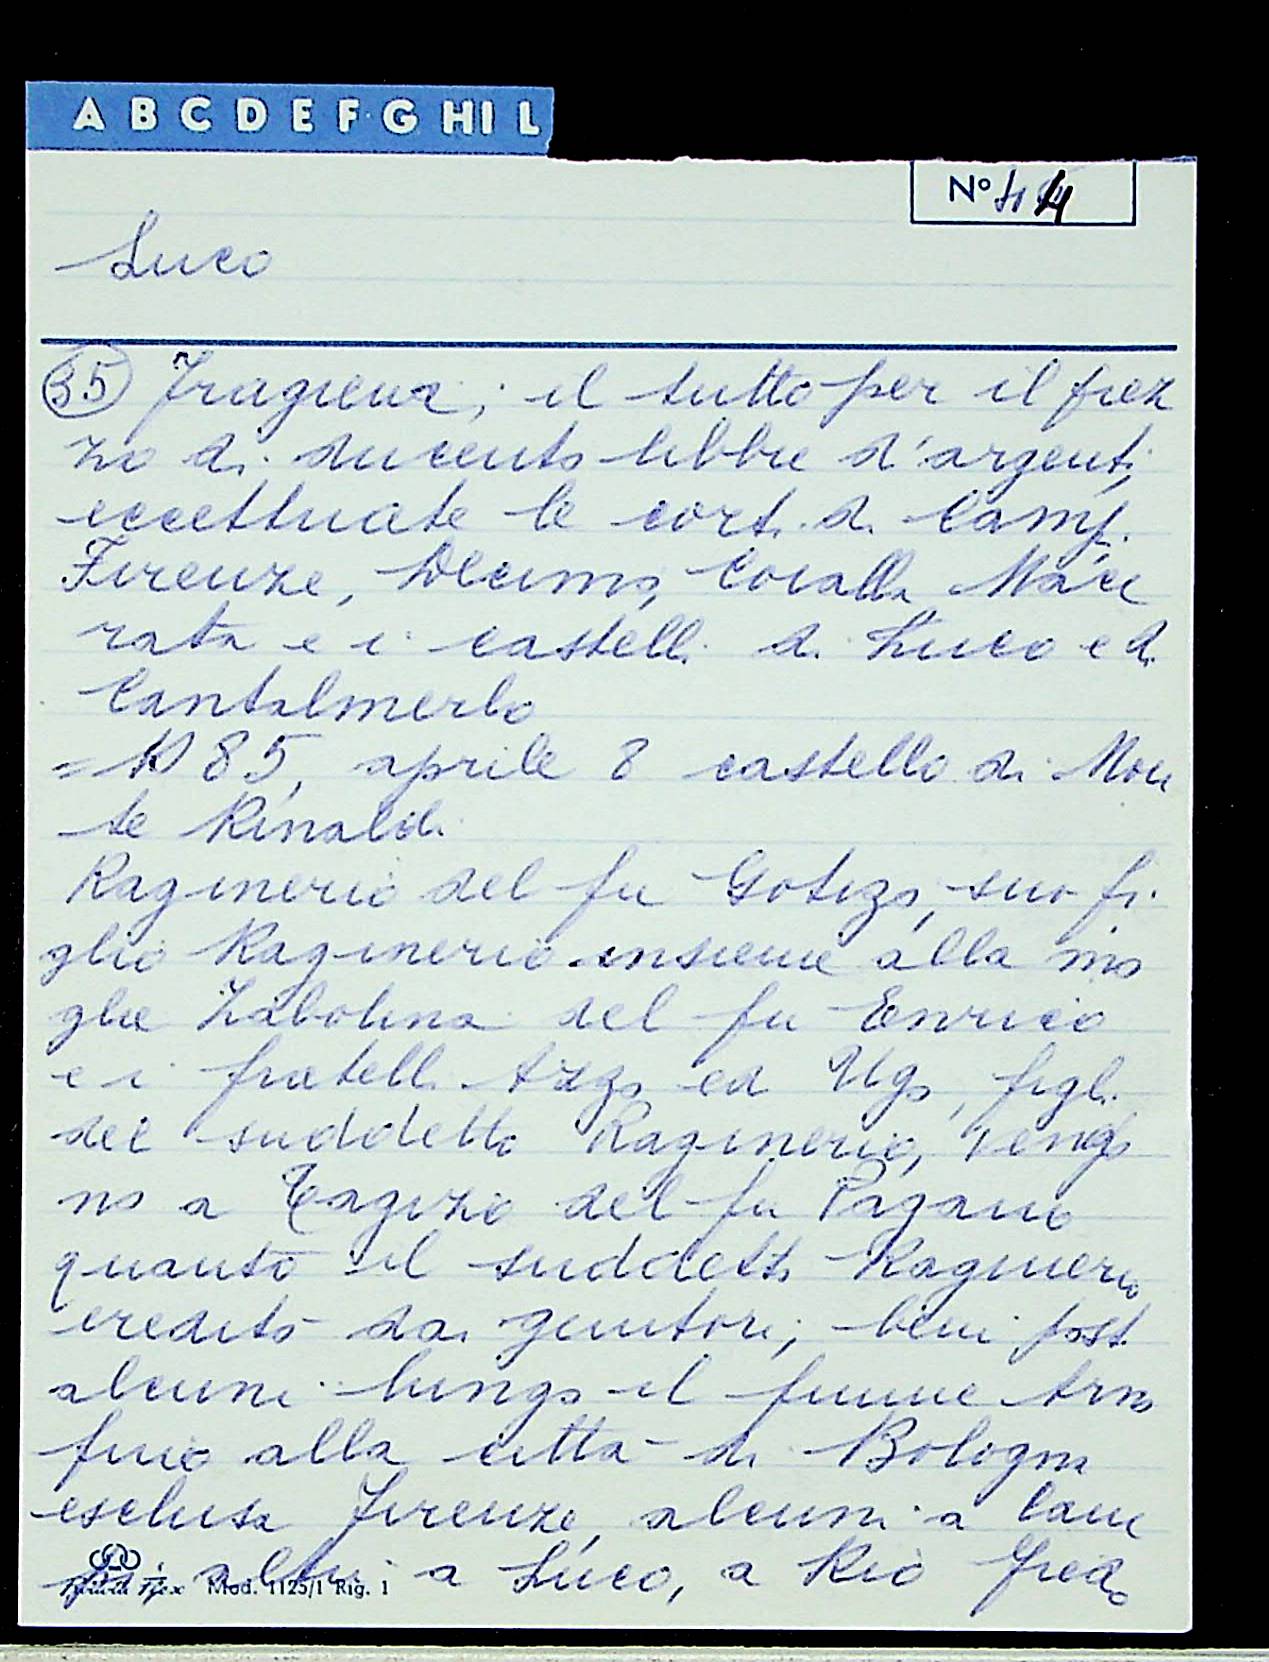 A B C D E F G HI L
Nº 44
Luco
35 Fragieur; il tutto per il prez
zo di ducento libbre d'argenti,
eccettuate le corti di Campi.
Firenze, Decimo, Coralla Mace
rata e i castelli di Luco e di
Cantalmerlo
= 1085, aprile 8 castello di Mon
te Rinaldi
Raginerio del fu Gotizo, suo fi
glio Raginerio insieme alla mo
glie Zabolina del fu Enrico
e i fratelli Azzo ed Ugo, figli
del suddetto Raginerio, vengo
no a Tagizio del fu Pagano
quanto il suddetto Raginerio
ereditò dai genitori; beni posti
alcuni lungo il fiume Arno
fino alla città di Bologna
esclusa Firenze, alcuni a Cam
pi, altri a Luco, a Rio Freddo
Mod. 1125/1 Rig. 1